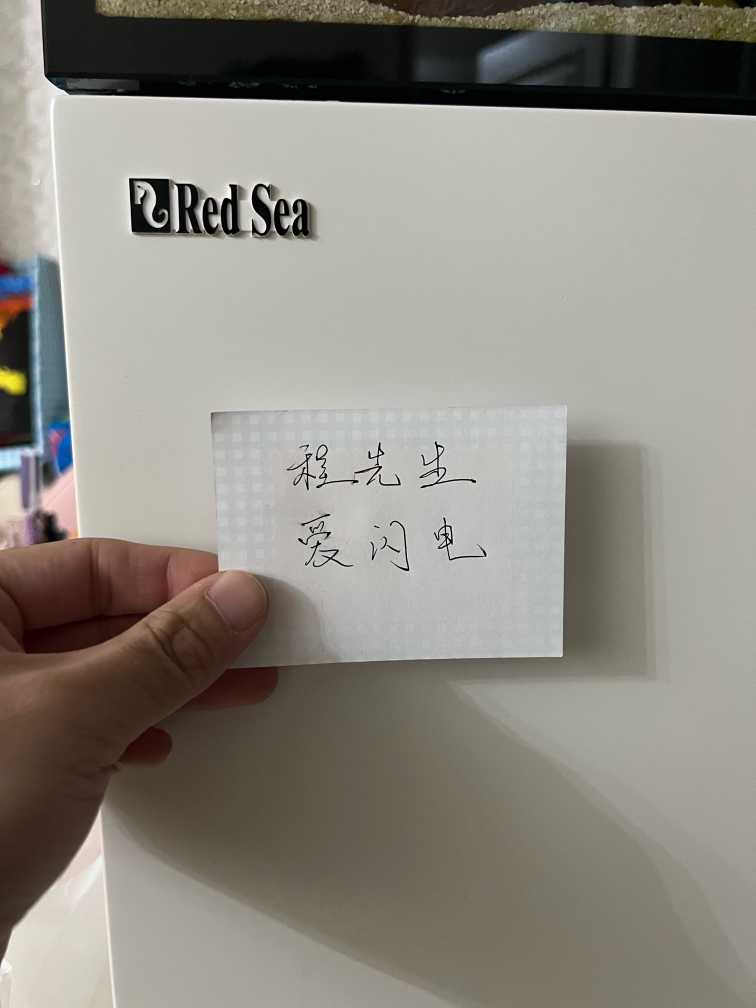 Red Sea
程先生
爱闪电